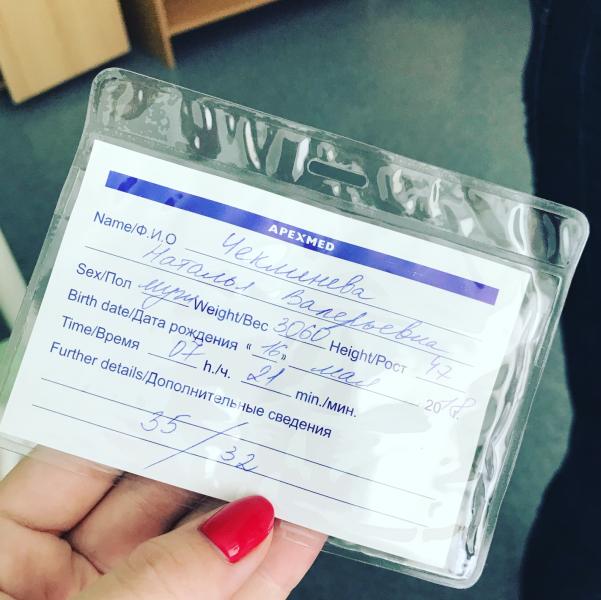 APEXMED
Name/Ф.И.О Чеклинева
Наталья Валерьевна
Sex/Пол муж Weight/Вес 3060 Height/Рост 47
Birth date/Дата рождения "16" мая 2018 г.
Time/Время 07 h./ч. 21 min./мин.
Further details/Дополнительные сведения
35/32